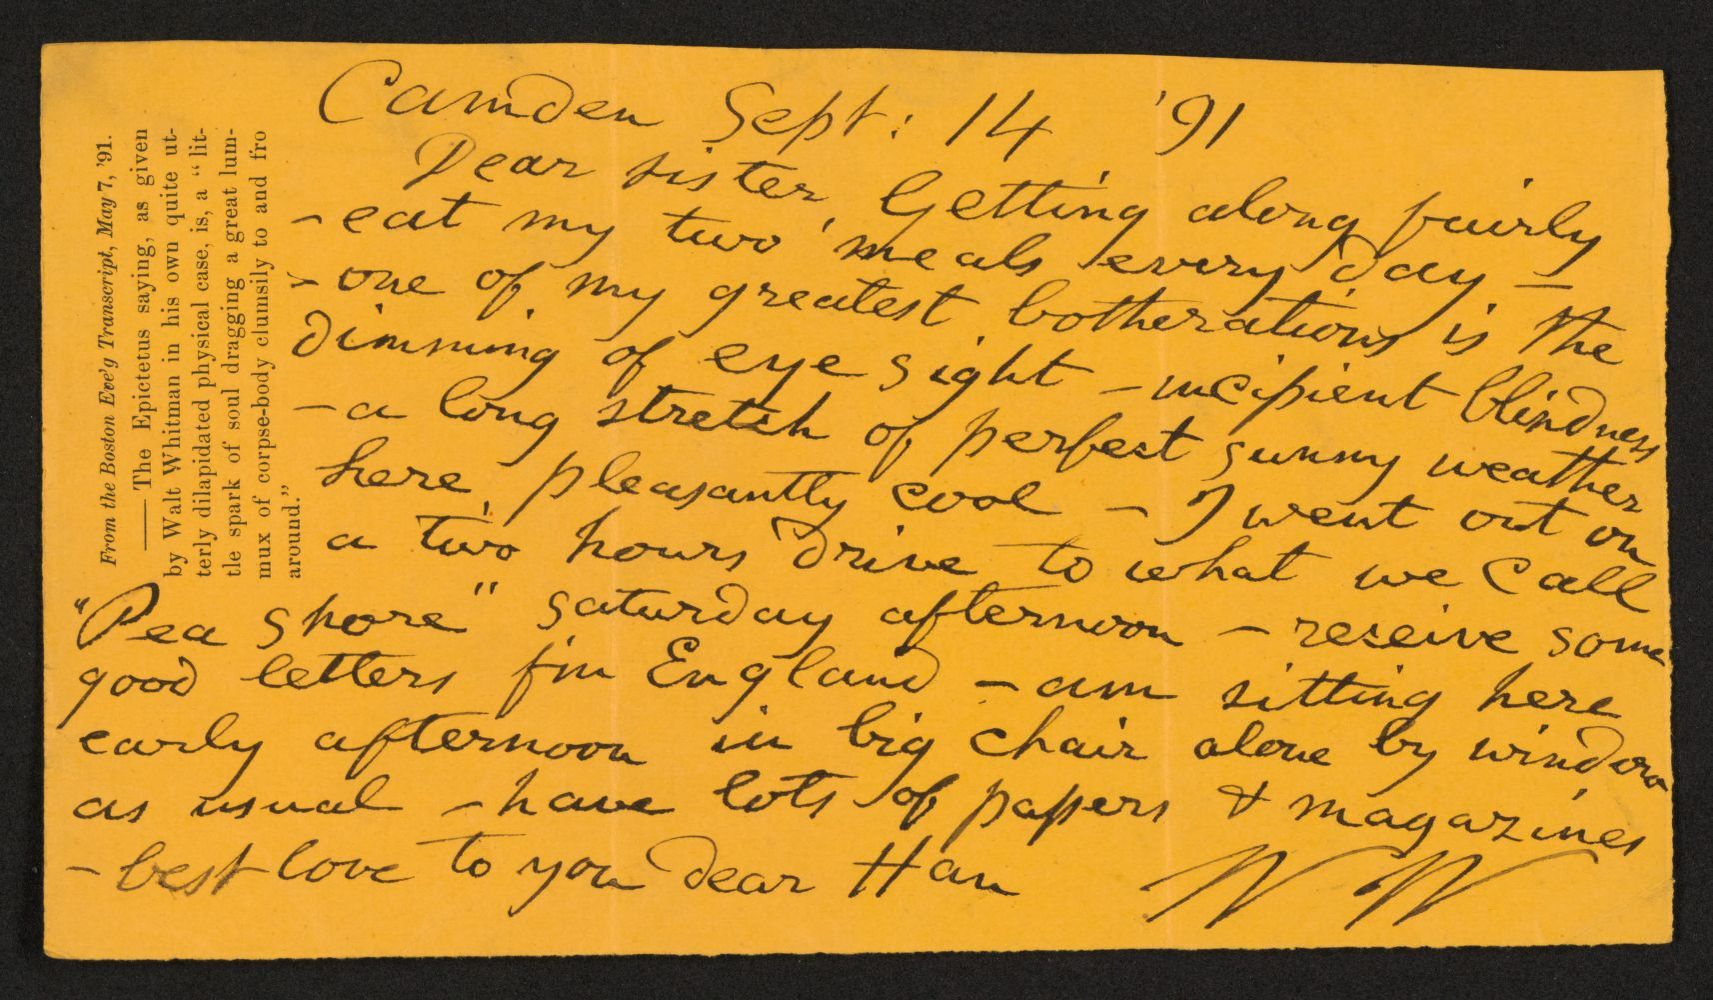 From the Boston Eve'g Transcript, May 7, '91.
—— The Epictetus saying, as given
by Walt Whitman in his own quite ut-
terly dilapidated physical case, is, a "lit-
tle spark of soul dragging a great lum-
mux of corpse-body clumsily to and fro
around."
Camden Sept: 14 '91
Dear sister, Getting along fairly
- eat my two meals every day -
- one of my greatest botherations is the
dimming of eye sight - incipient blindness
- a long stretch of perfect sunny weather
here, pleasantly cool - I went out on
a two hours drive to what we call
"Pea shore" saturday afternoon - receive some
good letters f'm England - am sitting here
early afternoon in big chair alone by window
as usual - have lots of papers & magazines
- best love to you dear Han WW